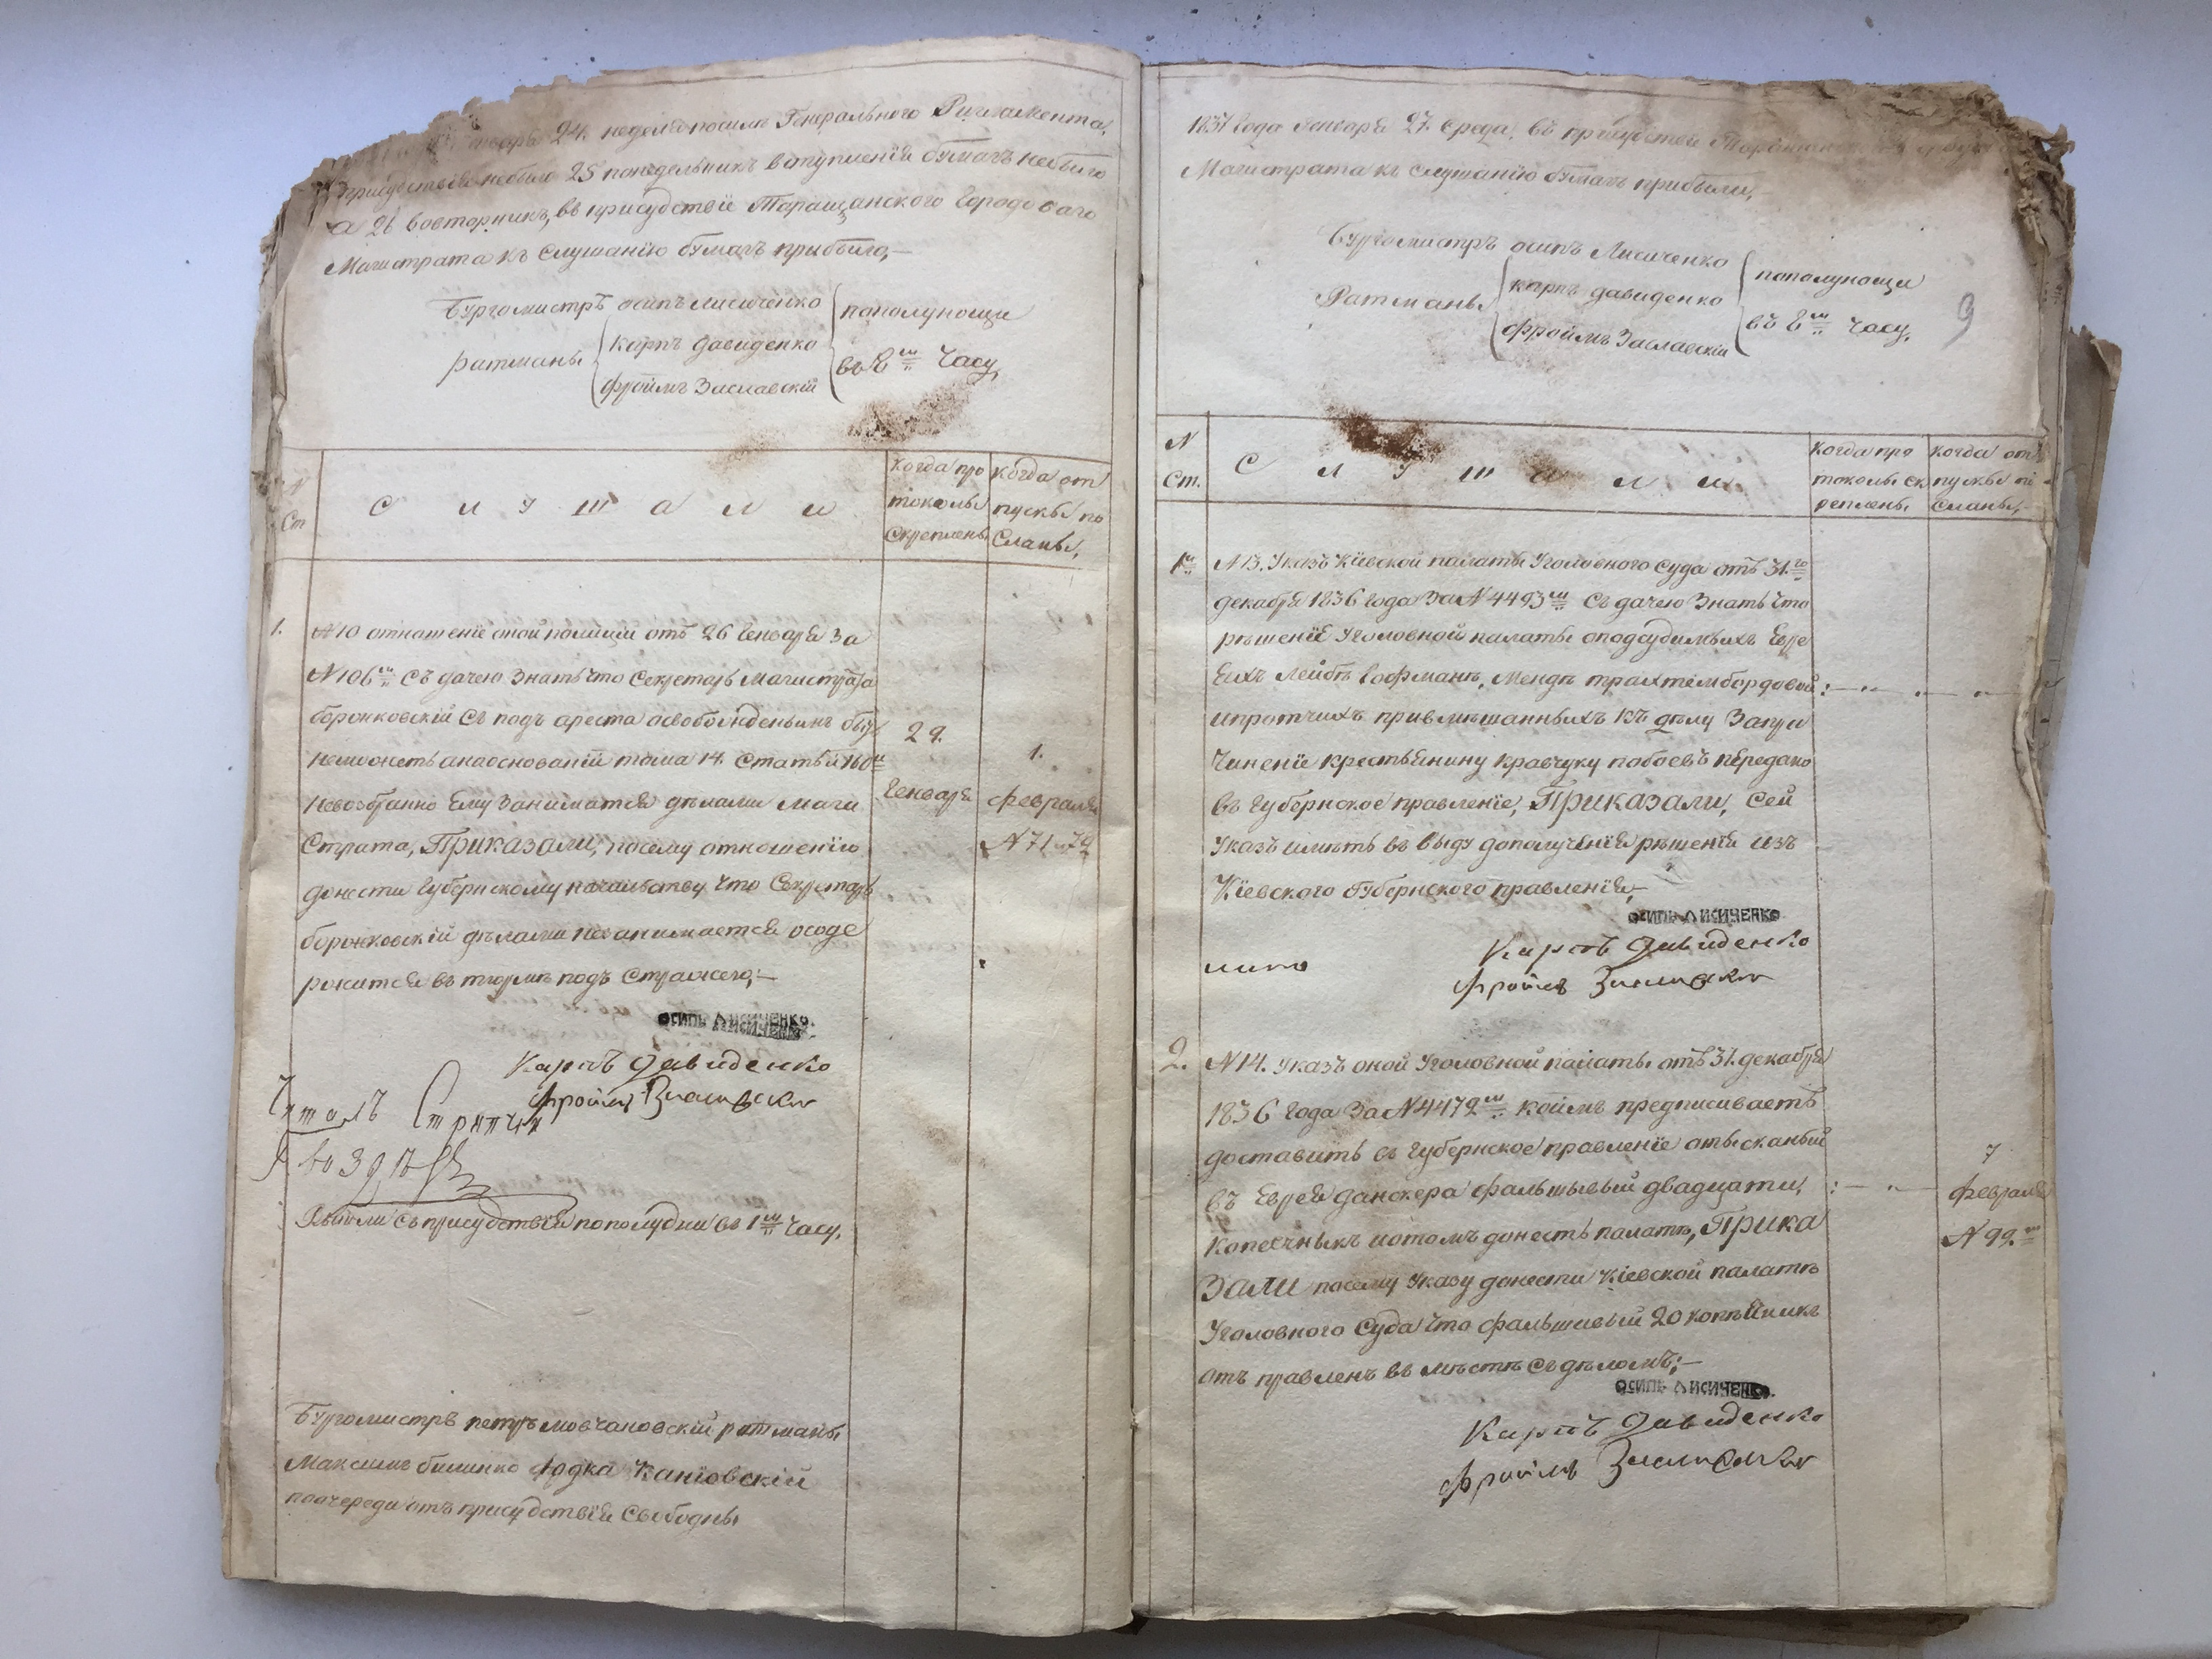 24. неделя посилѣ Генерального Регламента,
присудствія небыло 25 понедельникъ вступленія бумагъ небыло
а 26 вовторникъ, въ присудствіи Таращанского Городоваго
Магистрата къ слушанію бумагъ прибыло,—
Бургомистръ осипъ лисиченко
ратманы
карпъ давиденко
фроимъ Заславскій
пополунощи
въ 8 ш часу,
N
Ст
С л у ш а л и
когда про
токолы
скреплены
когда от
пуски по
сланы,
1.
N 10 отношеніе оной полиціи отъ 26 Генваря за
N 106 м съ дачею знать что Секретарь магистрата
боронковскій съ подъ ареста освобожденымъ быть
неможетъ анаоснованіи тома 14. статьи 160 и
невозбранно ему заниматся дѣлами маги
страта, Приказали, посему отношенію
донести губернскому начальству что Секретарь
боронковскій дѣлами незанимается осоде
ржится въ тюрмѣ подъ стражею;—
29.
Генваря
1.
февраля
N 71 и 72
осипъ лисиченко.
Карпъ Давиденко
Фроимъ Заславски
Читалъ Стряпчій
Вышли съ присудствія пополудни въ 1 м часу,
Бургомистръ петръ мовчановскій ратманы
Максимъ билинко фодка Каніовскій
поочереди отъ присудствія свободны
1837 года Генваря 27. среда, въ присудствіи Таращанского
Магистрата къ слушанію бумагъ прибыли,—
Бургомистръ осипъ Лисиченко
Ратманы
карпъ давиденко
фроимъ Заславскій
пополунощи
въ 8 м часу,
9
N
Ст.
С л у ш а л и
когда про
токолы ск
реплены
когда от
пуски по
сланы,
1 й
N 13. Указъ Кіевской палаты Уголовного суда отъ 31. го
декабря 1836 года за N 4493 м съ дачею знать что
рѣшеніе Уголовной палаты оподсудимыхъ Евре
Ехъ Лейбѣ Гофманѣ, Мендѣ трахтембордовой
ипротчихъ привмѣшанныхъ къ дѣлу запри
Чиненіе крестьянину кравчуку побоевъ передано
въ губернское правленіе, Приказали, Сей
Указъ имѣть въ виду дополученія рѣшенія изъ
Кіевского губернского правленія,—
осипъ лисиченко
Карпъ Давиденко
Фроимъ Заславски
2.
N 14. Указъ оной Уголовной палаты отъ 31. декабря
1836 года за N 4472 м коимъ предписиваетъ
доставить съ губернское правленіе отысканый
въ Еврея данскера фальшывый двадцати,
копеечникъ ипотомъ донесть палатѣ, Прика
зали посему Указу донести Кіевской палатѣ
Уголовного Суда что фальшивый 20 копѣйникъ
отъ правленъ въ мѣстѣ съ дѣломъ;—
7
февраля
N 99. м
осипъ лисиченко.
Карпъ Давиденко
Фроимъ Заславски